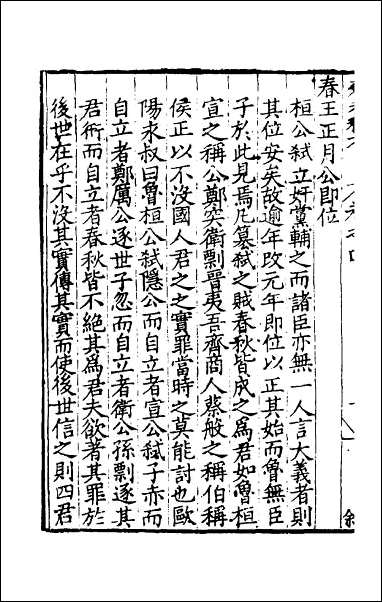 春王正月公即位
桓公弑立奸黨輔之而諸臣亦無一人言大義者則
其位安矣故逾年改元年即位以正其始而魯無臣
子於此見焉凡篡弑之賊春秋皆成之爲君如魯桓
宣之稱公鄭突衛剽晉夷吾齊商人蔡般之稱伯稱
侯正以不沒國人君之之實罪當時之莫能討也歐
陽永叔曰魯桓公弑隱公而自立者宣公弑子赤而
自立者鄭厲公逐世子忽而自立者衛公孫剽逐其
君衎而自立者春秋皆不絕其爲君夫欲著其罪於
後世在乎不沒其實傳其實而使後世信之則四君